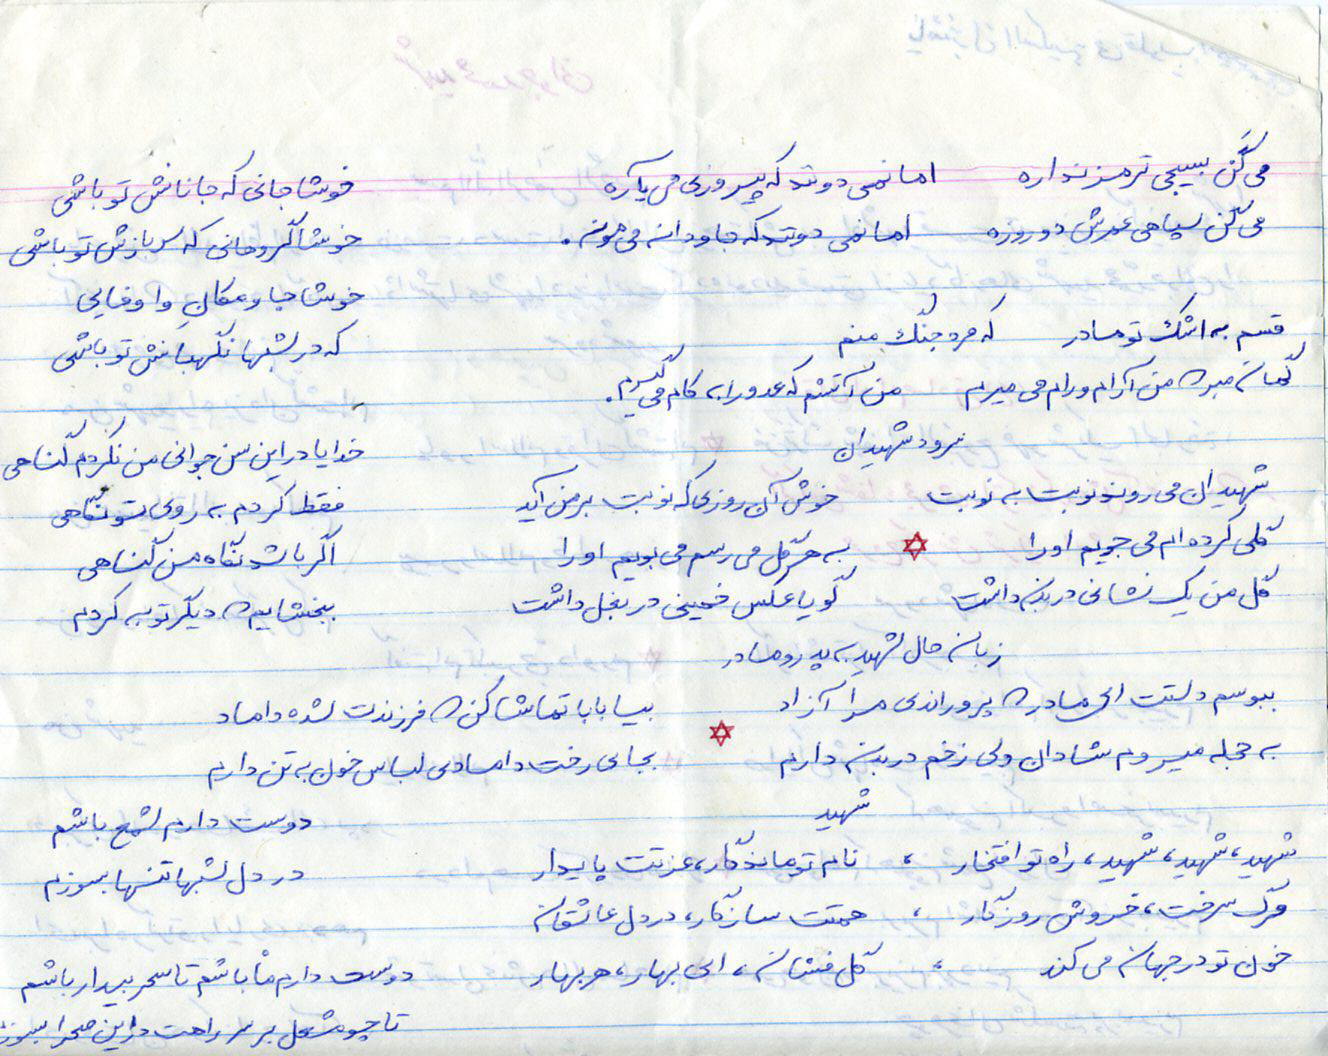 می گن بسیجی ترمز نداره    اما نمی دونند که پیروزی می یاره    خوشا جانی که جانانش تو باشی
می گن سپاهی عمرش دو روزه    اما نمی دونند که جاودانه می مونه .    خوشا گروهانی که سربازش تو باشی
خوشا جا و مکان و
قسم به اشک تو مادر    که مرد جنگ منم    که در شبها نگهبانش تو باشی
گمان مبر که من آرام و رام می میرم    من آتشم که عدو را به کام می گیرم .
سرود شهیدان    خدایا در این سن جوانی من نکردم گناهی
شهیدان می روند نوبت به نوبت    خوش آن روزی که نوبت بر من آید    فقط کردم به روی تو نگاهی
گلی گم کرده ام می جویم او را    به هر گل می رسم می بویم او را    اگر باشد نگاه من گناهی
گل من یک نشانی در بدن داشت    گویا عکس خمینی در بغل داشت    ببخشایم که دیگر توبه کردم
زبان حال شهید به پدر و مادر
ببوسم دستت ای مادر که پروراندی مرا آزاد    بیا بابا تماشا کن که فرزندت شده داماد
به حجله میروم شادان ولی زخم در بدن دارم    بجای رخت دامادی لباس خون به تن دارم
شهید    دوست دارم شمع باشم
شهید، شهید، شهید، راه تو افتخار ،    نام تو ماندگار، عزتت پایدار    در دل شبها تنها بسوزم
مرگ سرخت، خروش روزگار ،    همتت سازگار، در دل عاشقان
خون تو در جهان می کند ،    گل فشان، ای بهار، هر بهار    دوست دارم ماه باشم تا سحر بیدار باشم
تا چو مشعل بر سر راهت در این صحرا